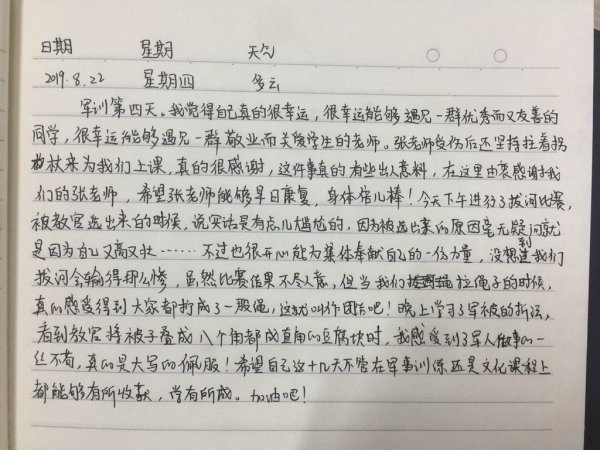 日期 星期 天气
2019.8.22 星期四 多云
军训第四天。我觉得自己真的很幸运，很幸运能够遇见一群优秀而又友善的
同学，很幸运能够遇见一群敬业而关爱学生的老师。张老师受伤后还坚持拉着拐
杖来为我们上课，真的很感谢，这件事真的有些出人意料，在这里由衷感谢我
们的张老师，希望张老师能够早日康复，身体倍儿棒！今天下午进行了拔河比赛，
被教官选出来的时候，说实话是有点儿尴尬的，因为被选出来的原因毫无疑问就
是因为自己又高又壮……不过也很开心能为集体奉献自己的一份力量，没想到我们
拔河会输得那么惨，虽然比赛结果不尽人意，但当我们拉绳子的时候，
真的感受得到大家都拧成了一股绳，这就叫作团结吧！晚上学习了军被的折法，
看到教官将被子叠成八个角都成直角的豆腐块时，我感受到了军人做事的一
丝不苟，真的是大写的佩服！希望自己这十几天不管在军事训练还是文化课程上
都能够有所收获，学有所成。加油吧！